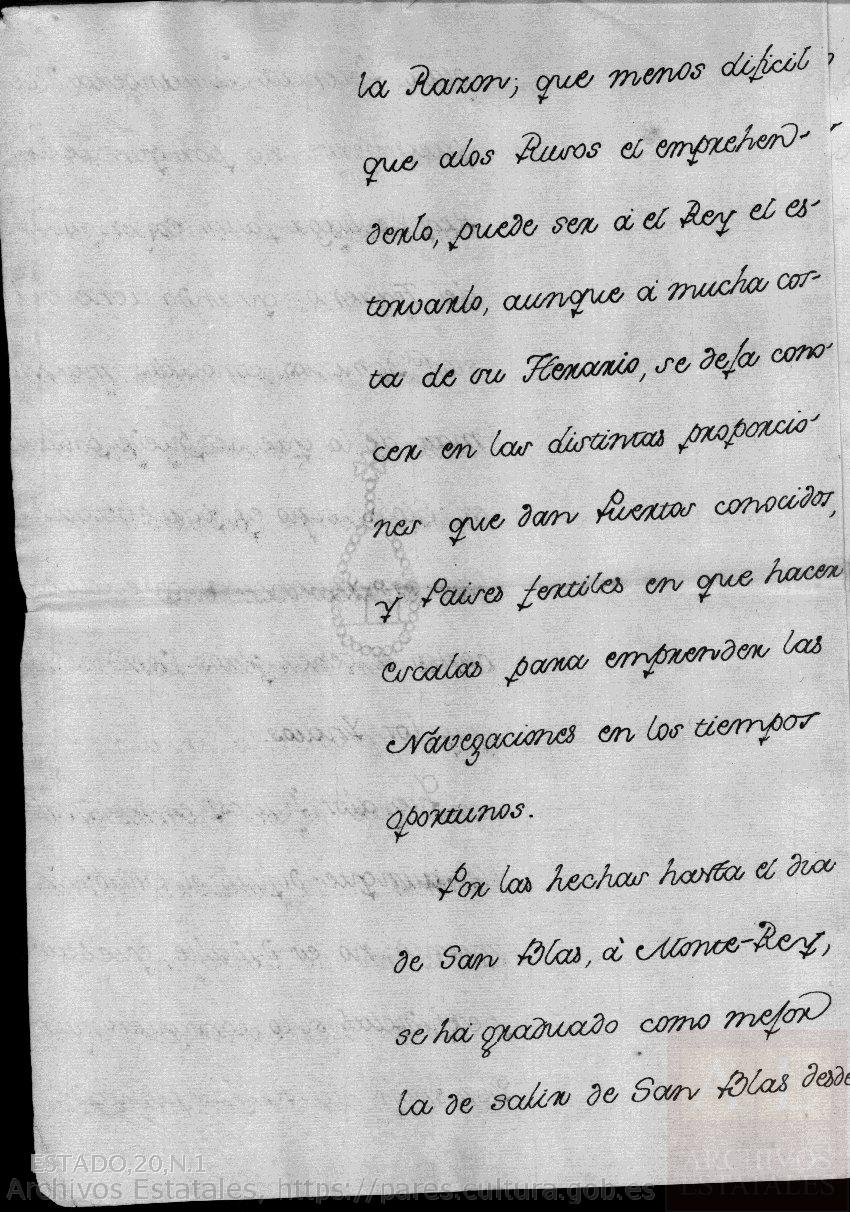 la Razon; que menos dificil
que alos Rusos el emprehen-
derlo, puede ser á el Rey el es-
torvarlo, aunque á mucha cos-
ta de su Herario, se deja cono-
cer en las distintas proporcio-
nes que dan Puertos conocidos,
y Paises fertiles en que hacer
escalas para emprender las
Navegaciones en los tiempos
oportunos.
Por las hechas hasta el dia
de San Blas, à Monte-Rey,
se ha graduado como mejor
la de salir de San Blas desde
ESTADO,20,N.1
Archivos Estatales, https://pares.cultura.gob.es
ARCHIVOS
ESTATALES